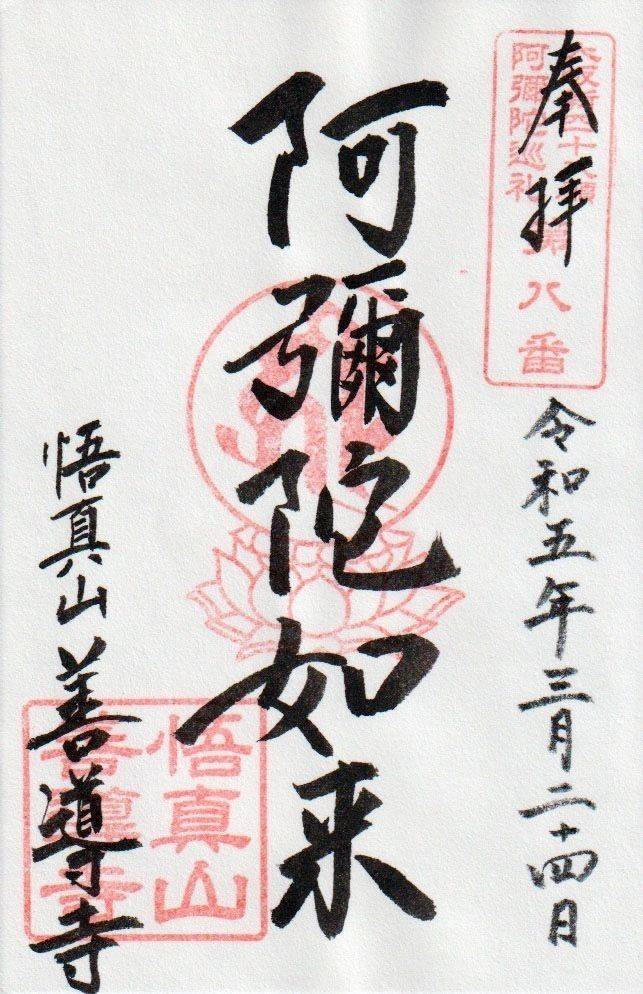 奉拝
大阪新四十八願
阿彌陀巡礼
第八番
令和五年三月二十四日
阿彌陀如来
悟真山善導寺
悟真山
善導寺